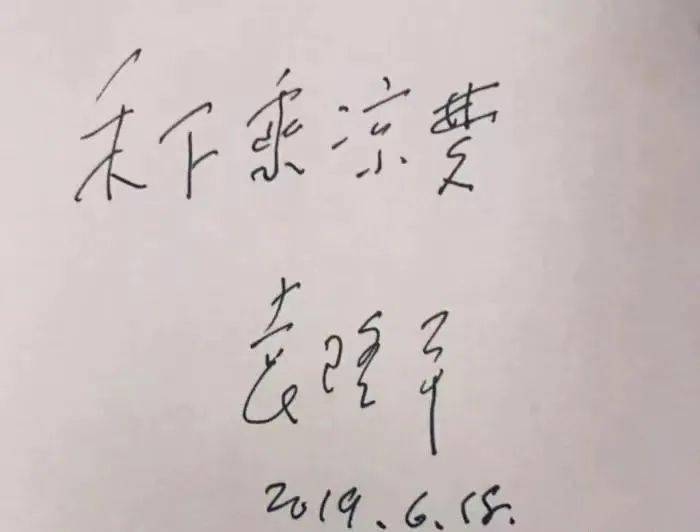 禾下乘凉梦
袁隆平
2019.6.18.